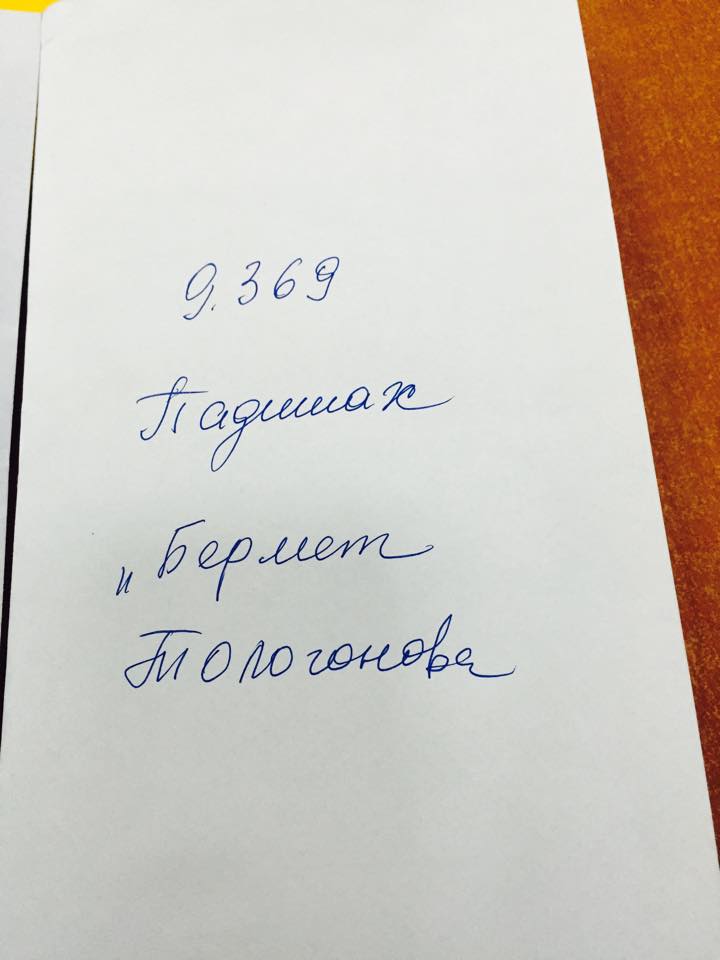 9.369
Падишах
и Бермет
Тологонова